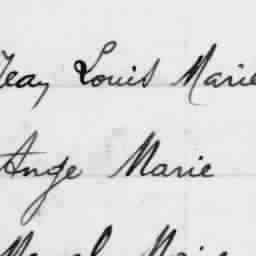 Jean Louis Marie
Ange Marie